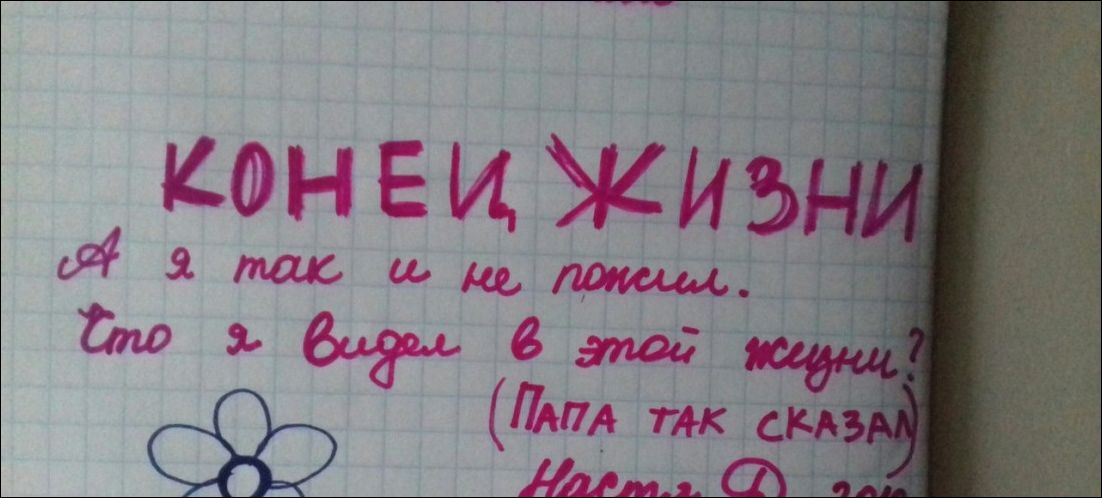 КОНЕЦ ЖИЗНИ
А я так и не пожил.
Что я видел в этой жизни?
(ПАПА ТАК СКАЗАЛ)
Настя Д